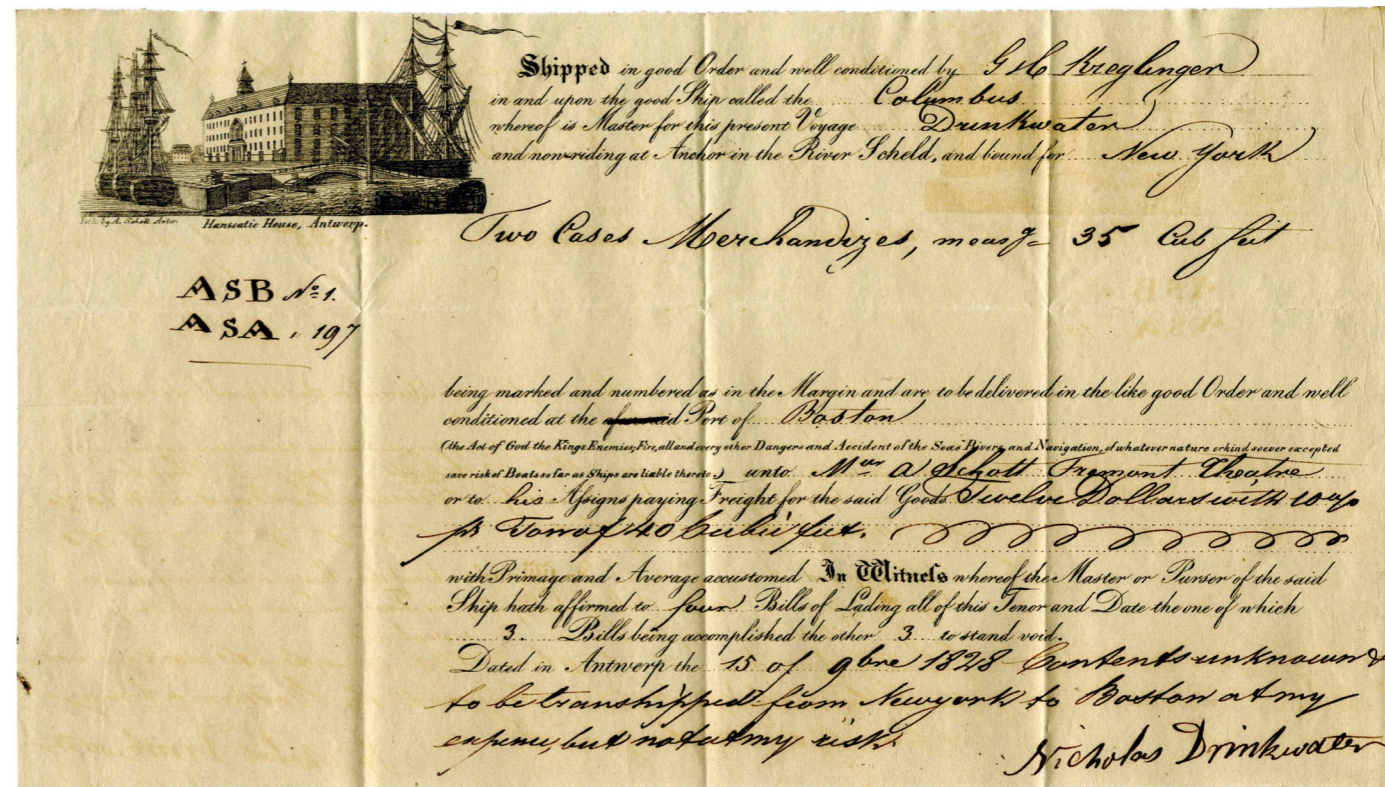 Shipped in good Order and well conditioned by G & C Kreglinger
in and upon the good Ship called the Columbus
whereof is Master for this present Voyage Drinkwater
and now riding at Anchor in the River Scheld, and bound for New York
Lith. by A. Antw.
Hanseatic House, Antwerp.
Two Cases Merchandizes, measg 35 Cub feet
ASB No 1.
ASA " 197
being marked and numbered as in the Margin and are to be delivered in the like good Order and well
conditioned at the aforesaid Port of Boston
(the Act of God the Kings Enemies, Fire, all and every other Dangers and Accident of the Seas Rivers and Navigation, of whatever nature or kind soever excepted
save risk of Boats so far as Ships are liable thereto.) unto Mr A Schott Tremont Theatre
or to his Assigns paying Freight for the said Goods Twelve Dollars with 10 %
pr Ton of 40 Cubic feet.
with Primage and Average accustomed In Witness whereof the Master or Purser of the said
Ship hath affirmed to four Bills of Lading all of this Tenor and Date the one of which
3. Bills being accomplished the other 3 to stand void.
Dated in Antwerp the 15 of 9bre 1828 Contents unknown &
to be transhipped from Newyork to Boston at my
expense, but not at my risk
Nicholas Drinkwater